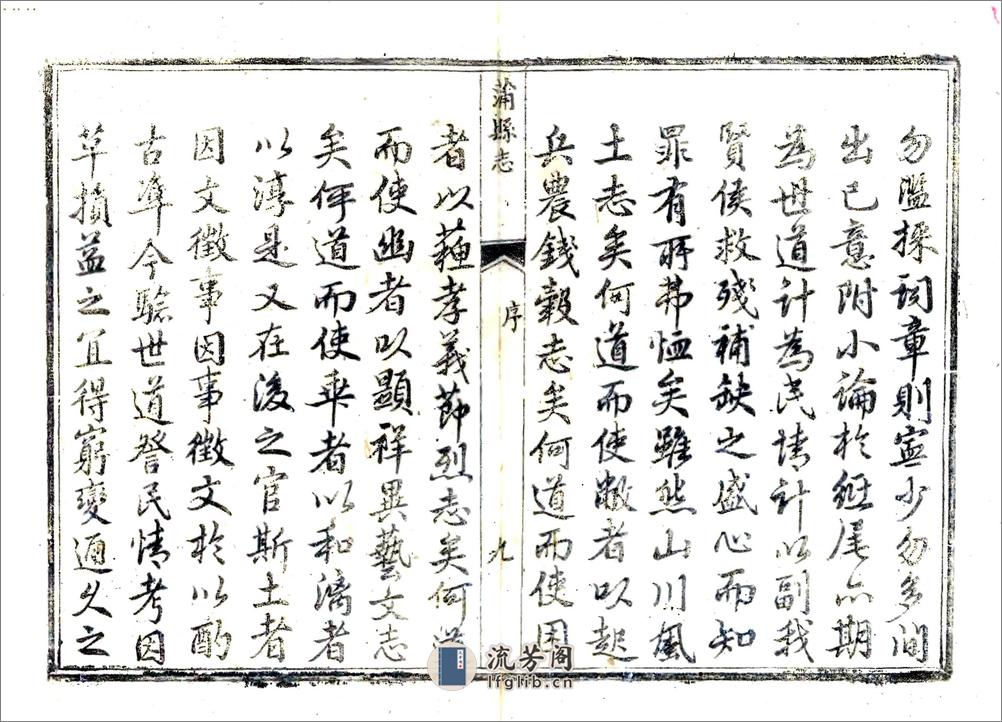 勿濫採詞章則寧少勿多間
出己意附小論於經尾亦期
為世道計為民情計以副我
賢侯救殘補缺之盛心而知
罪有所弗恤矣雖然山川風
土志矣何道而使敝者以起
兵農錢穀志矣何道而使困
蒲縣志
序
九
者以蘓孝義節烈志矣何道
而使幽者以顯祥異藝文志
矣何道而使乖者以和漓者
以淳是又在後之官斯土者
因文徵事因事徵文於以酌
古準今驗世道詧民情考因
革損益之宜得窮變通久之
流芳阁
lfglib.cn